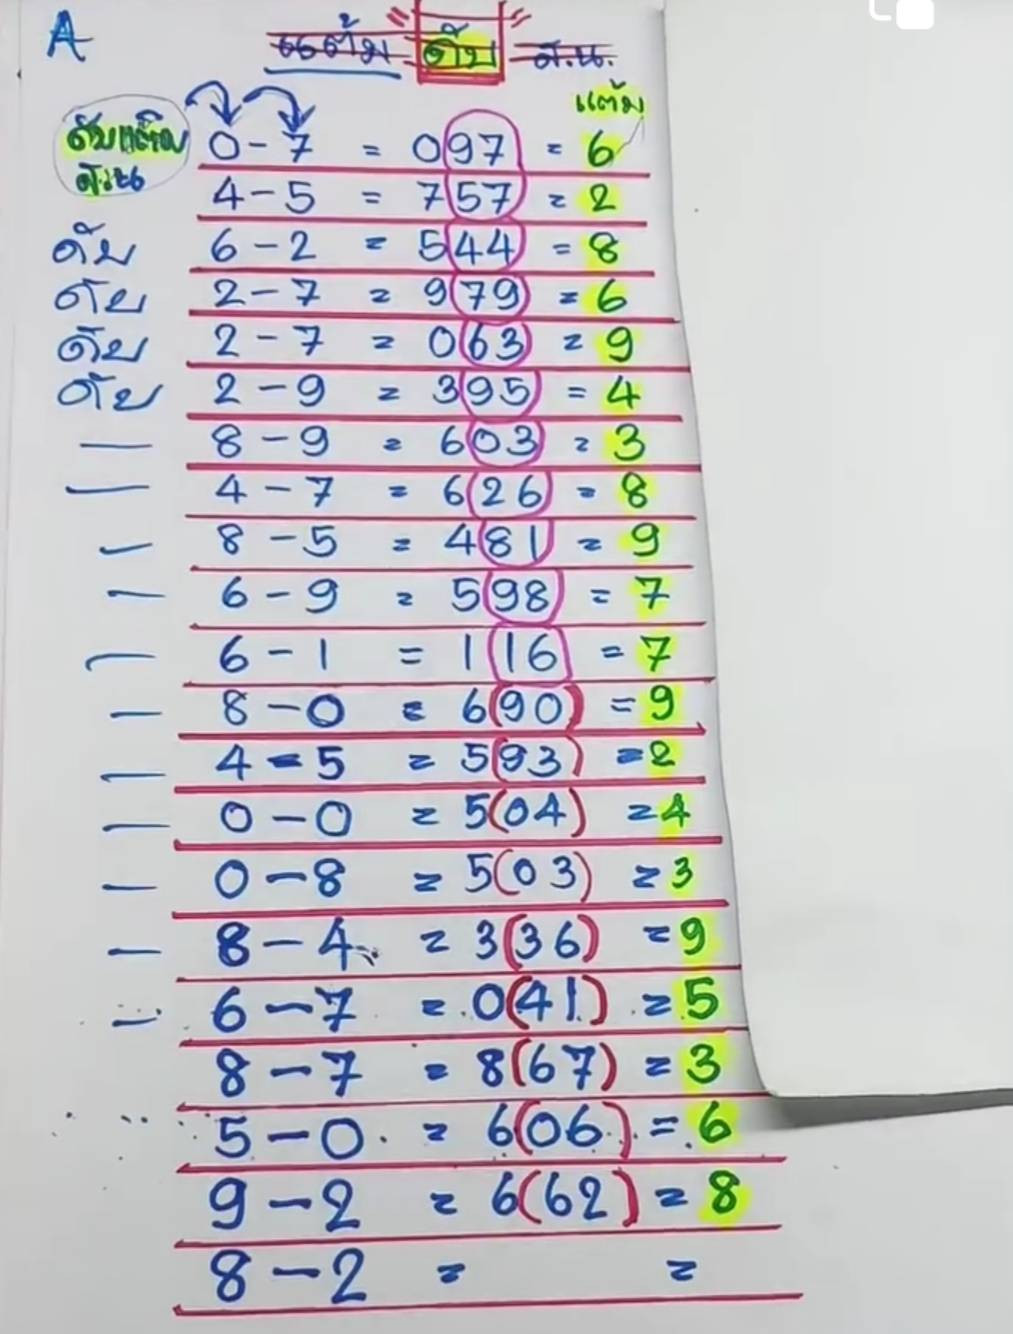 A แต้ม ดับ ส.น.
แต้ม
ดับแต้ม 0-7 = 097 = 6
ส.บน 4-5 = 757 = 2
ดับ 6-2 = 544 = 8
ดับ 2-7 = 979 = 6
ดับ 2-7 = 063 = 9
ดับ 2-9 = 395 = 4
— 8-9 = 603 = 3
— 4-7 = 626 = 8
— 8-5 = 481 = 9
— 6-9 = 598 = 7
— 6-1 = 116 = 7
— 8-0 = 6(90) = 9
— 4-5 = 5(93) = 2
— 0-0 = 5(04) = 4
— 0-8 = 5(03) = 3
— 8-4 = 3(36) = 9
— 6-7 = 0(41) = 5
8-7 = 8(67) = 3
5-0 = 6(06) = 6
9-2 = 6(62) = 8
8-2 = =